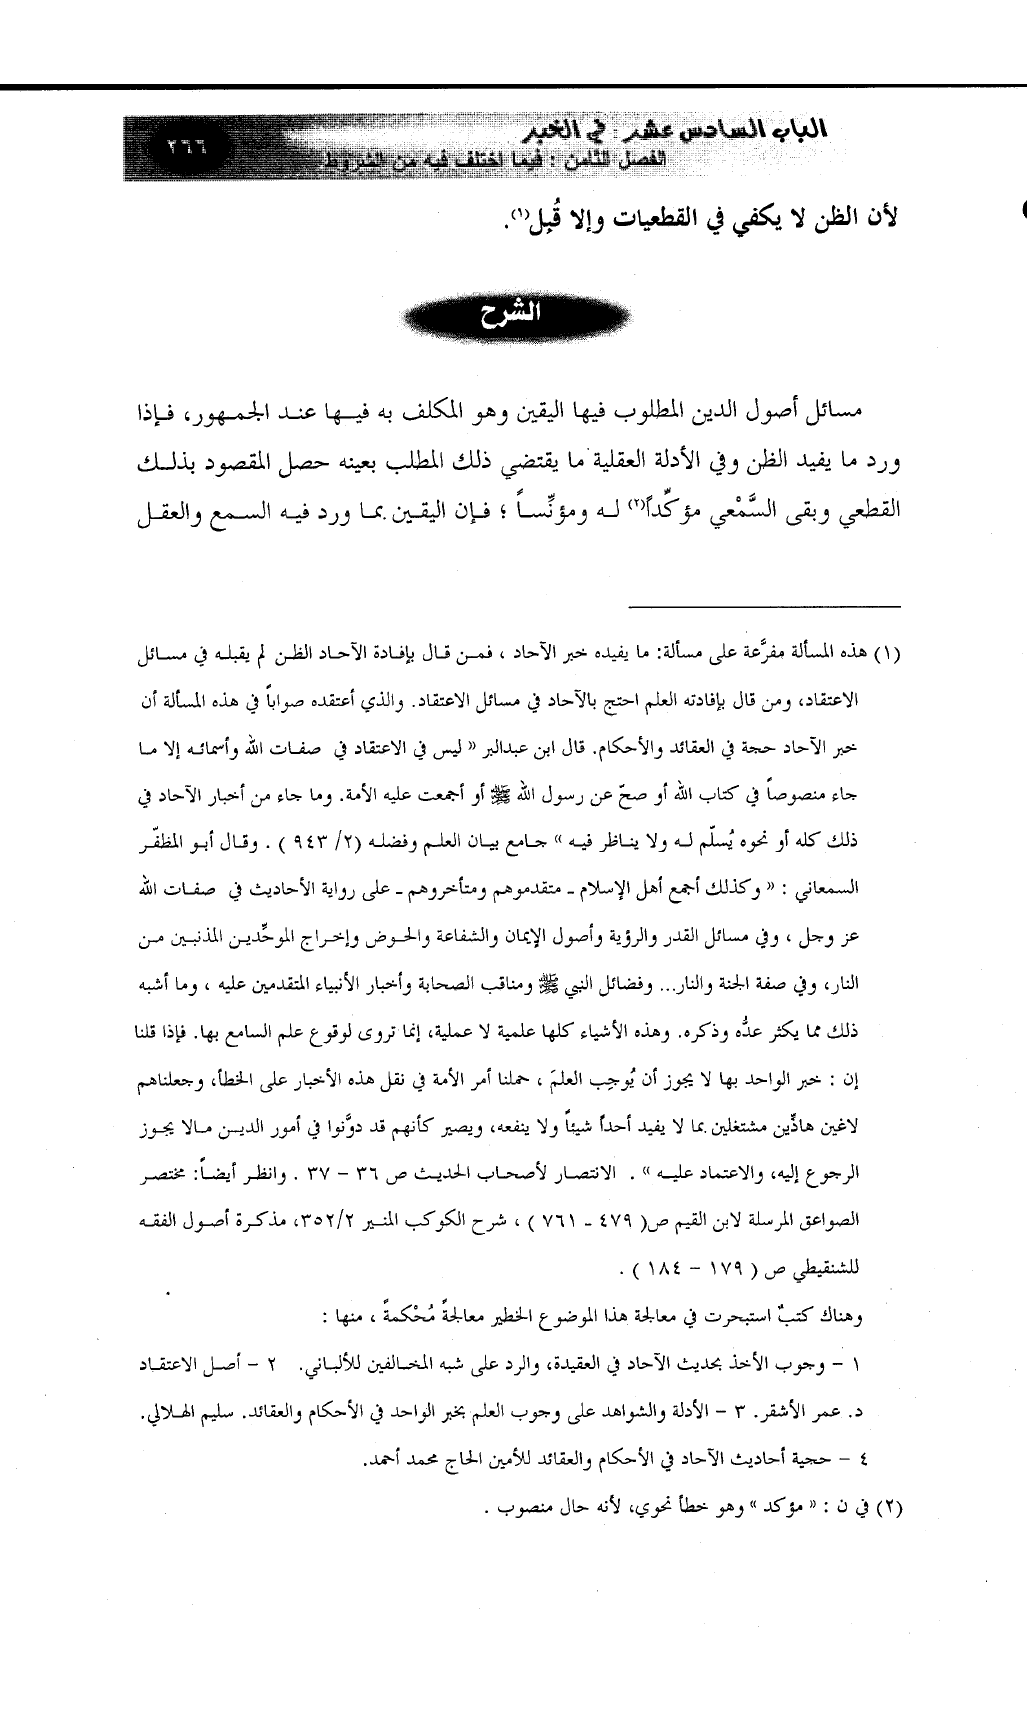 الباب السادس عشر : في الخبر
٢٦٦
الفصل الثامن : فيما اختلف فيه من الشروط
لأن الظن لا يكفي في القطعيات وإلا قُبِل(١).
الشرح
مسائل أصول الدين المطلوب فيها اليقين وهو المكلف به فيــها عنــد الجمــهور، فــإذا
ورد ما يفيد الظن وفي الأدلة العقلية ما يقتضي ذلك المطلب بعينه حصل المقصود بذلــك
القطعي وبقى السَّمْعي مؤكِّداً(٢) لــه ومؤنِّســاً ؛ فــإن اليقــين بمــا ورد فيــه الســمع والعقــل
(١) هذه المسألة مفرَّعة على مسألة: ما يفيده خبر الآحاد ، فمــن قــال بإفادة الآحاد الظــن لم يقبلــه في مســائل
الاعتقاد، ومن قال بإفادته العلم احتج بالآحاد في مسائل الاعتقاد. والذي أعتقده صواباً في هذه المسألة أن
خبر الآحاد حجة في العقائد والأحكام. قال ابن عبدالبر « ليس في الاعتقاد في صفــات الله وأسمائــه إلا مــا
جاء منصوصاً في كتاب الله أو صحّ عن رسول الله ﷺ أو أجمعت عليه الأمة. وما جاء من أخبار الآحاد في
ذلك كله أو نحوه يُسلّم لــه ولا ينــاظر فيــه » جــامع بيــان العلــم وفضلــه (٢/ ٩٤٣ ) . وقــال أبــو المظفّــر
السمعاني : « وكذلك أجمع أهل الإسلام ـ متقدموهم ومتأخروهم ـ على رواية الأحاديث في صفــات الله
عز وجل ، وفي مسائل القدر والرؤية وأصول الإيمان والشفاعة والحــوض وإخــراج الموحِّديــن المذنبــين مــن
النار، وفي صفة الجنة والنار... وفضائل النبي ﷺ ومناقب الصحابة وأخبار الأنبياء المتقدمين عليه ، وما أشبه
ذلك مما يكثر عدُّه وذكره. وهذه الأشياء كلها علمية لا عملية، إنما تروى لوقوع علم السامع بها. فإذا قلنا
إن : خبر الواحد بها لا يجوز أن يُوجِب العلمَ ، حملنا أمر الأمة في نقل هذه الأخبار على الخطأ، وجعلناهم
لاغين هاذِّين مشتغلين بما لا يفيد أحداً شيئاً ولا ينفعه، ويصير كأنهم قد دوَّنوا في أمور الديــن مــالا يجــوز
الرجوع إليه، والاعتماد عليــه » . الانتصار لأصحاب الحديــث ص ٣٦ – ٣٧ . وانظــر أيضــاً: مختصــر
الصواعق المرسلة لابن القيم ص( ٤٧٩ ـ ٧٦١ ) ، شرح الكوكب المنــير ٣٥٢/٢، مذكــرة أصــول الفقــه
للشنقيطي ص ( ١٧٩ – ١٨٤ ) .
وهناك كتبٌ استبحرت في معالجة هذا الموضوع الخطير معالجةً مُحْكمةً ، منها :
١ – وجوب الأخذ بحديث الآحاد في العقيدة، والرد على شبه المخــالفين للألبــاني. ٢ – أصــل الاعتقــاد
د. عمر الأشقر. ٣ – الأدلة والشواهد على وجوب العلم بخبر الواحد في الأحكام والعقائد. سليم الهــلالي.
٤ – حجية أحاديث الآحاد في الأحكام والعقائد للأمين الحاج محمد أحمد.
(٢) في ن : « مؤكد » وهو خطأ نحوي، لأنه حال منصوب .